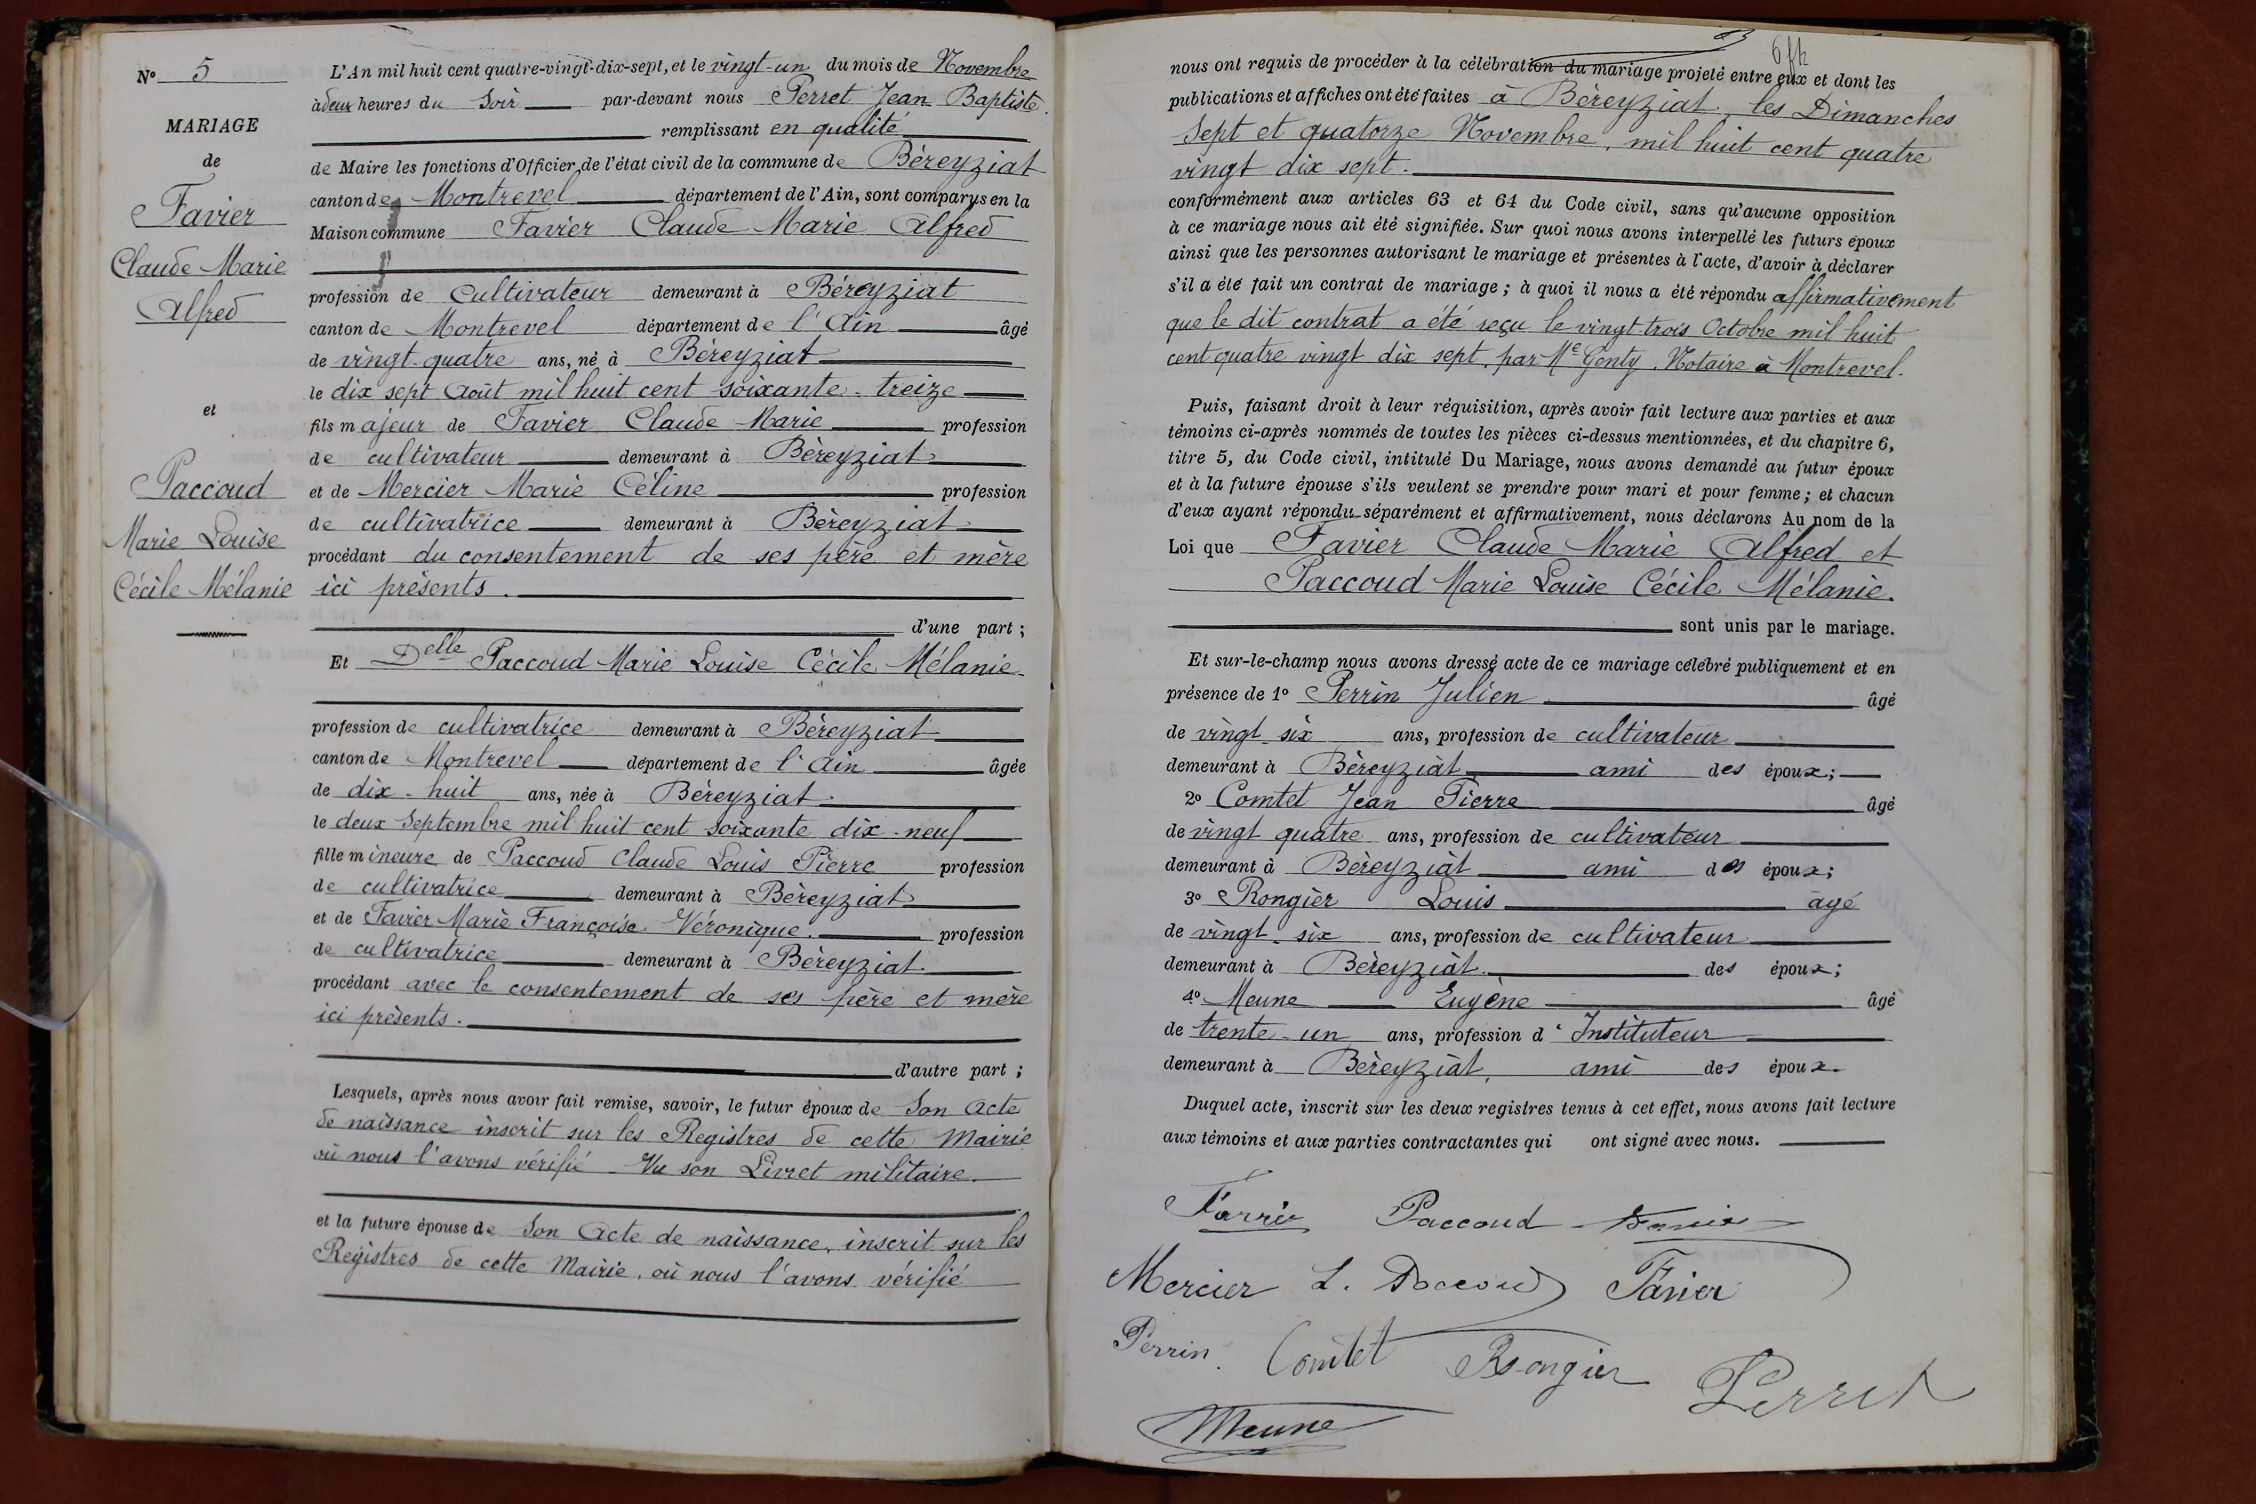 N° 5
MARIAGE
de
Favier
Claude Marie
Alfred
et
Paccoud
Marie Louise
Cécile Mélanie
L'An mil huit cent quatre-vingt-dix-sept, et le vingt-un du mois de Novembre
à deux heures du Soir par-devant nous Perret Jean Baptiste
remplissant en qualité
de Maire les fonctions d'Officier de l'état civil de la commune de Béreyziat
canton de Montrevel département de l'Ain, sont comparus en la
Maison commune Favier Claude Marie Alfred
profession de Cultivateur demeurant à Béreyziat
canton de Montrevel département de l'Ain âgé
de vingt-quatre ans, né à Béreyziat
le dix sept Août mil huit cent soixante-treize
fils majeur de Favier Claude Marie profession
de cultivateur demeurant à Béreyziat
et de Mercier Marie Céline profession
de cultivatrice demeurant à Béreyziat
procédant du consentement de ses père et mère
ici présents.
d'une part ;
Et Delle Paccoud Marie Louise Cécile Mélanie
profession de cultivatrice demeurant à Béreyziat
canton de Montrevel département de l'Ain âgée
de dix-huit ans, née à Béreyziat
le deux Septembre mil huit cent soixante dix-neuf
fille mineure de Paccoud Claude Louis Pierre profession
de cultivatrice demeurant à Béreyziat
et de Favier Marie Françoise Véronique. profession
de cultivatrice demeurant à Béreyziat
procédant avec le consentement de ses père et mère
ici présents.
d'autre part ;
Lesquels, après nous avoir fait remise, savoir, le futur époux de Son Acte
de naissance inscrit sur les Registres de cette Mairie
où nous l'avons vérifié - Vu son Livret militaire.
et la future épouse de Son Acte de naissance, inscrit sur les
Registres de cette Mairie, où nous l'avons vérifié
nous ont requis de procéder à la célébration du mariage projeté entre eux et dont les
publications et affiches ont été faites à Béreyziat, les Dimanches
Sept et quatorze Novembre, mil huit cent quatre
vingt dix sept.
conformément aux articles 63 et 64 du Code civil, sans qu'aucune opposition
à ce mariage nous ait été signifiée. Sur quoi nous avons interpellé les futurs époux
ainsi que les personnes autorisant le mariage et présentes à l'acte, d'avoir à déclarer
s'il a été fait un contrat de mariage ; à quoi il nous a été répondu affirmativement
que le dit contrat a été reçu le vingt-trois Octobre mil huit
cent quatre vingt dix sept, par Me Genty, Notaire à Montrevel.
Puis, faisant droit à leur réquisition, après avoir fait lecture aux parties et aux
témoins ci-après nommés de toutes les pièces ci-dessus mentionnées, et du chapitre 6,
titre 5, du Code civil, intitulé Du Mariage, nous avons demandé au futur époux
et à la future épouse s'ils veulent se prendre pour mari et pour femme ; et chacun
d'eux ayant répondu séparément et affirmativement, nous déclarons Au nom de la
Loi que Favier Claude Marie Alfred et
Paccoud Marie Louise Cécile Mélanie.
sont unis par le mariage.
Et sur-le-champ nous avons dressé acte de ce mariage célébré publiquement et en
présence de 1° Perrin Julien âgé
de vingt-six ans, profession de cultivateur
demeurant à Béreyziat ami des époux ;
2° Comtet Jean Pierre âgé
de vingt quatre ans, profession de cultivateur
demeurant à Béreyziat ami des époux ;
3° Rongier Louis âgé
de vingt-six ans, profession de cultivateur
demeurant à Béreyziat. des époux ;
4° Meune Eugène âgé
de trente-un ans, profession d'Instituteur
demeurant à Béreyziat, ami des époux.
Duquel acte, inscrit sur les deux registres tenus à cet effet, nous avons fait lecture
aux témoins et aux parties contractantes qui ont signé avec nous.
Favier Paccoud
Mercier L. Paccoud Favier
Perrin. Comtet Rongier Perret
Meune